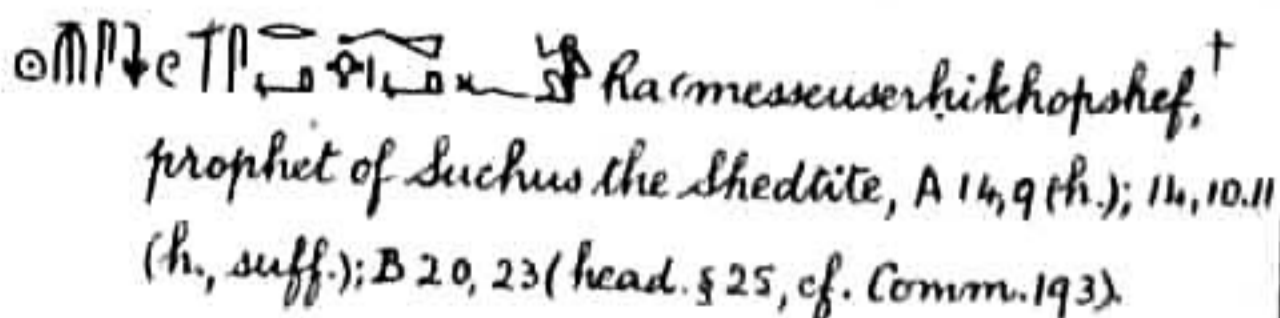 Raʿmesseuserḥikhopshef,†
prophet of Suchus the Shedtite, A 14,9 (h.); 14,10.11
(h., suff.); B 20, 23 (head. § 25, cf. Comm. 193).